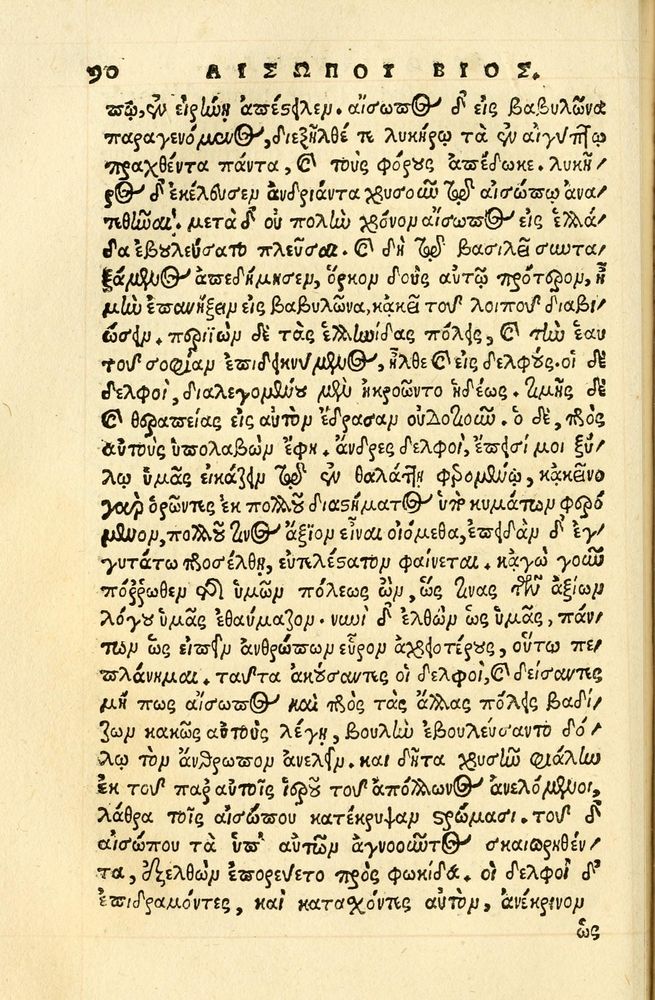 90 ΑΙΣΩΠΟΥ ΒΙΟΣ.
πῳ, ἐν εἰρήνῃ ἀπέστειλεν. αἴσωπος δ' εἰς βαβυλῶνα
παραγενόμενος, διεξῆλθέ τε λυκήρῳ τὰ ἐν αἰγύπτῳ
πραχθέντα πάντα, καὶ τοὺς φόρους ἀπέδωκε. λυκῆ-
ρος δ' ἐκέλευσεν ἀνδριάντα χρυσοῦν τῷ αἰσώπῳ ἀνα-
τεθῆναι. μετὰ δ' οὐ πολὺν χρόνον αἴσωπος εἰς ἑλλά-
δα ἐβουλεύσατο πλεῦσαι. καὶ δὴ τῷ βασιλεῖ συντα-
ξάμενος ἀπεδήμησεν, ὅρκον δοὺς αὐτῷ πρότερον, ἦ
μὴν ἐπανήξειν εἰς βαβυλῶνα, κἀκεῖ τὸν λοιπὸν διαβι-
ώσειν. περιϊὼν δὲ τὰς ἑλληνίδας πόλεις, καὶ τὴν ἑαυ
τοῦ σοφίαν ἐπιδεικνύμενος, ἦλθε καὶ εἰς δελφούς. οἱ δὲ
δελφοὶ, διαλεγομένου μὲν ἠκροῶντο ἡδέως. τιμῆς δὲ
καὶ θεραπείας εἰς αὐτὸν ἔδρασαν οὐδοτιοῦν. ὁ δὲ, πρὸς
αὐτοὺς ὑπολαβὼν ἔφη. ἄνδρες δελφοὶ, ἔπεισί μοι ξύ-
λῳ ὑμᾶς εἰκάζειν τῷ ἐν θαλάττῃ φερομένῳ, κἀκεῖνο
γὰρ ὁρῶντες ἐκ πολλοῦ διαστήματος ὑπὸ κυμάτων φερό-
μενον, πολλοῦ τινος ἄξιον εἶναι οἰόμεθα, ἐπειδὰν δ' ἐγ-
γυτάτω προσέλθῃ, εὐτελέστατον φαίνεται. κἀγὼ γοῦν
πόῤῥωθεν τῆς ὑμῶν πόλεως ὢν, ὥς τινας τῶν ἀξίων
λόγου ὑμᾶς ἐθαύμαζον. νυνὶ δ' ἐλθὼν ὡς ὑμᾶς, πάν-
των ὡς εἰπεῖν ἀνθρώπων εὗρον ἀχρειοτέρους, οὕτω πε-
πλάνημαι. ταῦτα ἀκούσαντες οἱ δελφοὶ, καὶ δείσαντες
μή πως αἴσωπος καὶ πρὸς τὰς ἄλλας πόλεις βαδί-
ζων κακῶς αὐτοὺς λέγῃ, βουλὴν ἐβουλεύσαντο δό-
λῳ τὸν ἄνθρωπον ἀνελεῖν. καὶ δῆτα χρυσῆν φιάλην
ἐκ τοῦ παρ' αὐτοῖς ἱεροῦ τοῦ ἀπόλλωνος ἀνελόμενοι,
λάθρα τοῖς αἰσώπου κατέκρυψαν στρώμασι. τοῦ δ'
αἰσώπου τὰ ὑπ' αὐτῶν ἀγνοοῦντος σκαιωρηθέν-
τα, ἐξελθὼν ἐπορεύετο πρὸς φωκίδα. οἱ δελφοὶ δ'
ἐπιδραμόντες, καὶ κατασχόντες αὐτὸν, ἀνέκρινον
ὡς